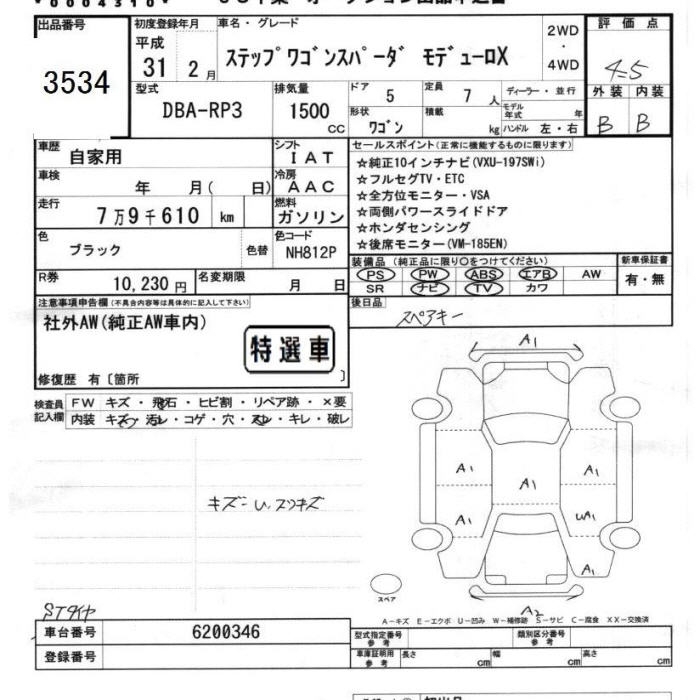 *0004310*
出品番号
3534
初度登録年月
平成
31 2 月
車名・グレード
ステップワゴンスパーダ モデューロX
2WD
・
4WD
評価点
4.5
外装 内装
B B
型式
DBA-RP3
排気量
1500
CC
ドア 5
定員 7 人
形状 ワゴン
積載 kg
ディーラー・並行
モデル年式 年
ハンドル 左・右
車歴 自家用
シフト IAT
車検 年 月( 日)
冷房 AAC
走行 7万9千610 km
燃料 ガソリン
色 ブラック 色替
色コード NH812P
R券 10,230円
名変期限 月 日
セールスポイント(正常に機能するものに限ります)
☆純正10インチナビ(VXU-197SWi)
☆フルセグTV・ETC
☆全方位モニター・VSA
☆両側パワースライドドア
☆ホンダセンシング
☆後席モニター(VM-185EN)
装備品 (純正品に限り○をつけてください)
PS PW ABS エアB AW
SR ナビ TV カワ
新車保証書
有・無
後日品
スペアキー
注意事項申告欄(不具合内容等は具体的に記入して下さい)
社外AW(純正AW車内)
特選車
修復歴 有〔箇所 〕
検査員記入欄
FW キズ・飛石・ヒビ割・リペア跡・×要
内装 キズ・汚レ・コゲ・穴・スレ・キレ・破レ
キズ
STタイヤ
A1
A1
A1
A1
A1
A1
UA1
A1
A2
スペア
A-キズ E-エクボ U-凹み W-補修跡 S-サビ C-腐食 XX-交換済
車台番号 6200346
登録番号
型式指定番号 参考
類別区分番号 参考
車庫証明用 参考
長さ cm 幅 cm 高さ cm